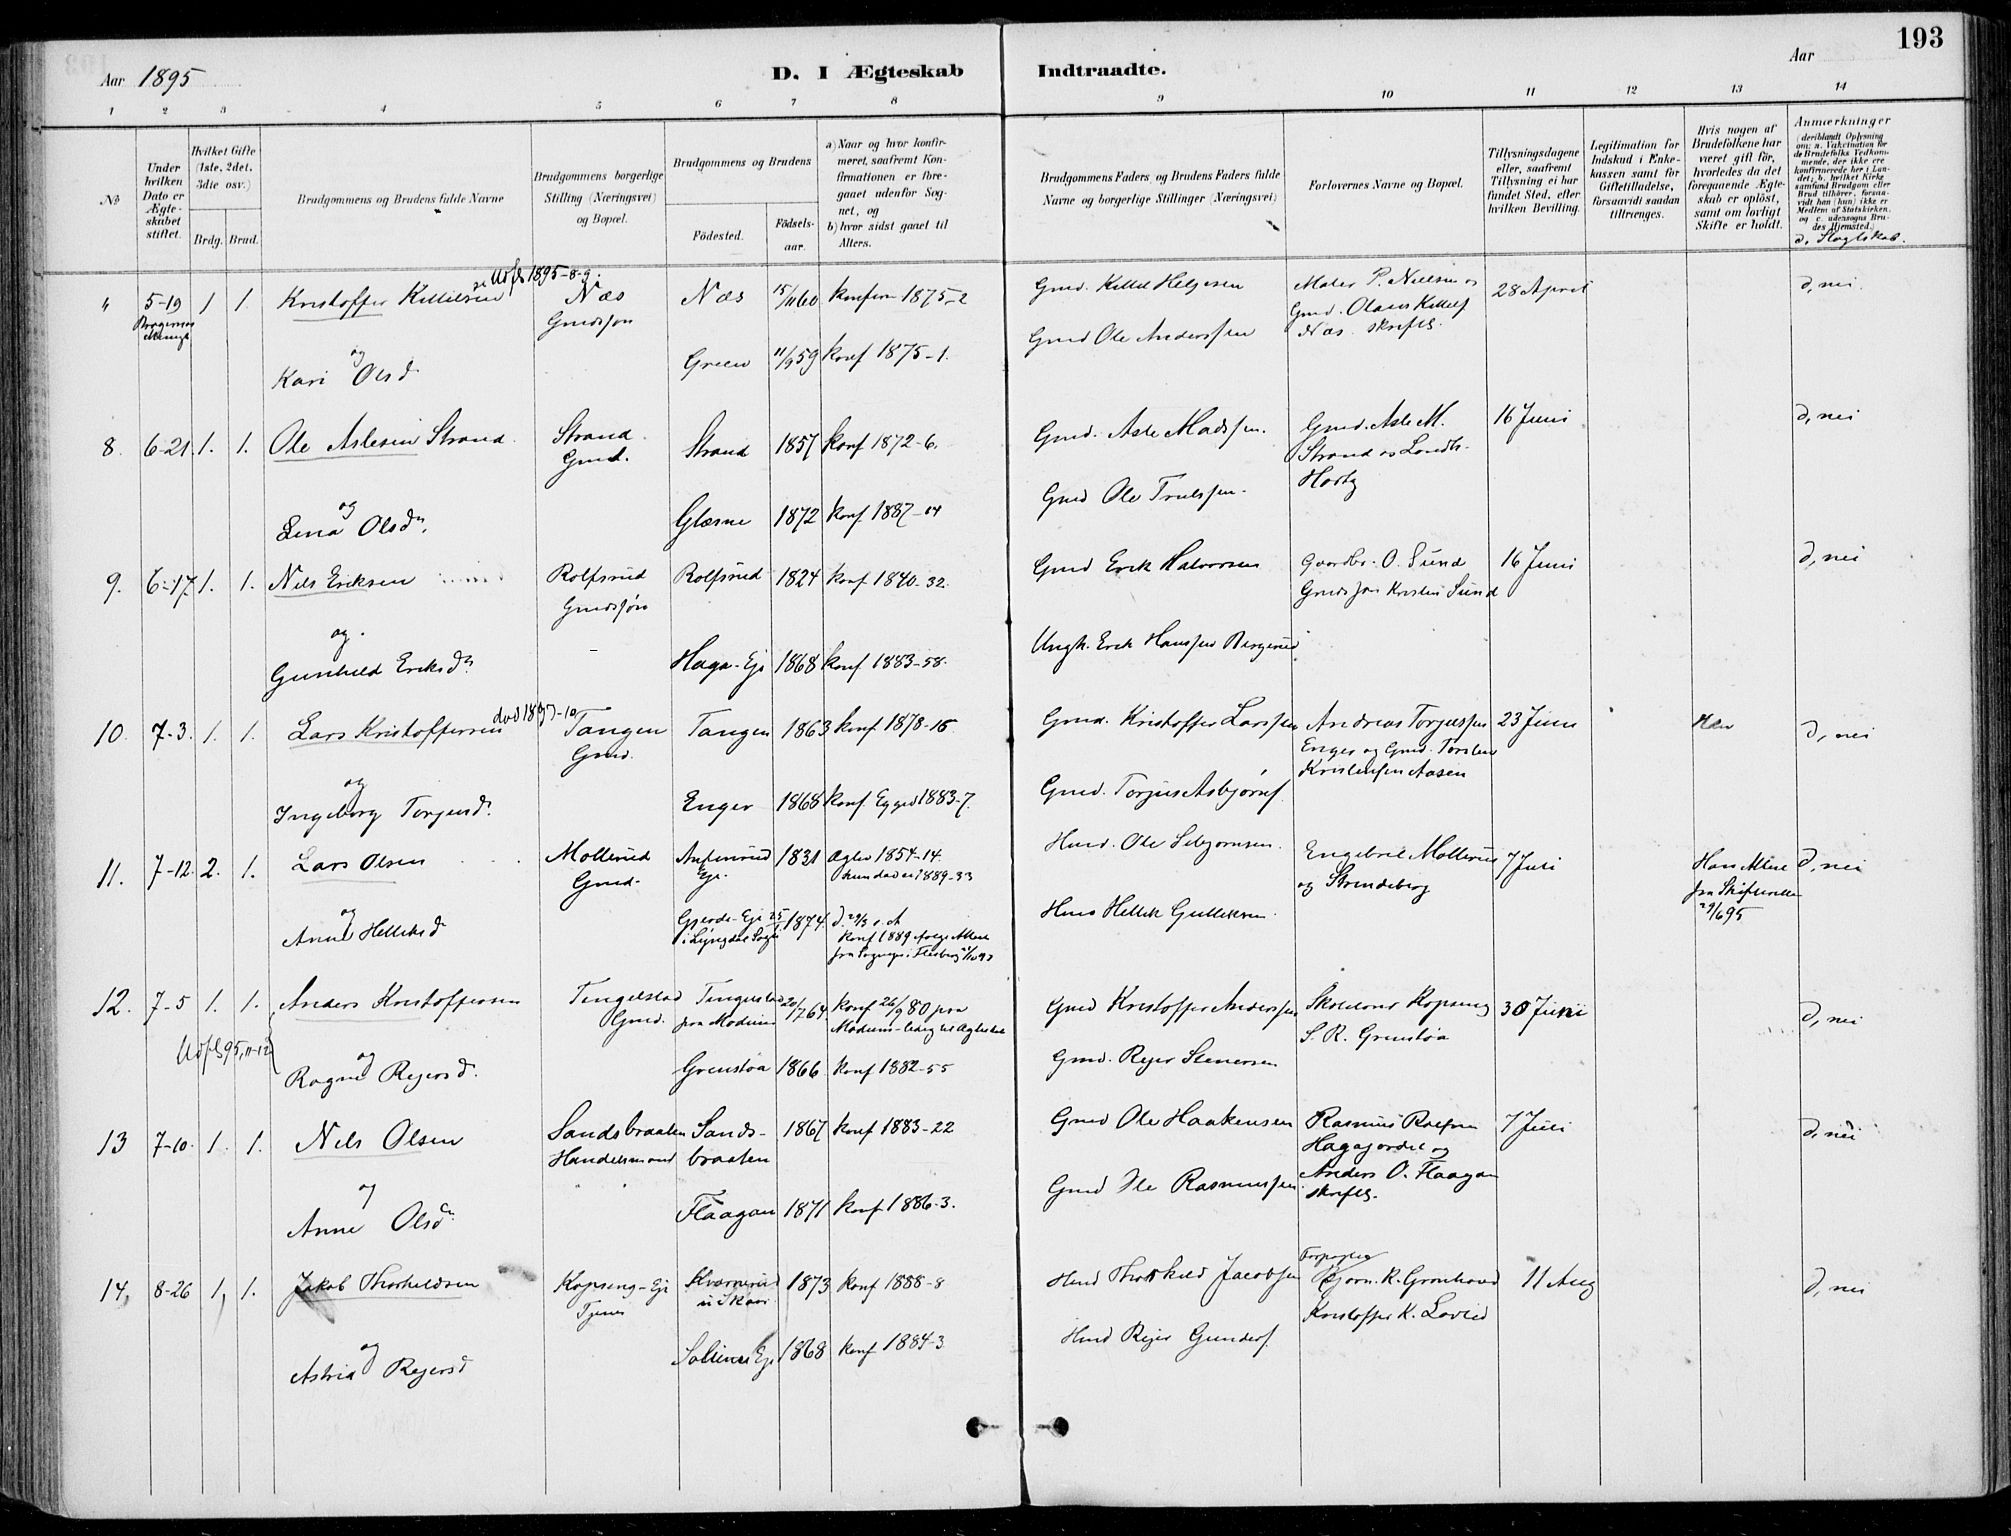 193
Aar 1895
D. I Ægteskab Indtraadte.
Aar
1 2 3 4 5 6 7 8 9 10 11 12 13 14
No
Under hvilken Dato er Ægteskabet stiftet.
Hvilket Gifte (1ste, 2det, 3die osv.)
Brdg. Brud.
Brudgommens og Brudens fulde Navne
Brudgommens borgerlige Stilling (Næringsvei) og Bopæl.
Brudgommens og Brudens
Fødested.
Fødselsaar.
a) Naar og hvor konfirmeret, saafremt Konfirmationen er foregaaet udenfor Sognet, og
b) hvor sidst gaaet til Alters.
Brudgommens Faders og Brudens Faders fulde Navne og borgerlige Stillinger (Næringsvei)
Forlovernes Navne og Bopæl.
Tillysningsdagene eller, saafremt Tillysning ei har fundet Sted, efter hvilken Bevilling.
Legitimation for Indskud i Enkekassen samt for Giftetilladelse, forsaavidt saadan tiltrænges.
Hvis nogen af Brudefolkene har været gift før, hvorledes da det foregaaende Ægteskab er opløst, samt om lovligt Skifte er holdt.
Anmærkninger (deriblandt Oplysning om: a. Vakcination for de Brudefolks Vedkommende, der ikke ere konfirmerede her i Landet; b. hvilket Kirkesamfund Brudgom eller Brud tilhører, forsaavidt han (hun) ikke er Medlem af Statskirken. og c. udensogns Brudes Hjemsted.)
d, Slægtskab.
" 5-19 1 1. Kristoffer Kittilsen Næs Næs 15/11 60 konfirm 1875-2 Gmd. Kittil Helgesen Maler P. Nielsen og 28 April d, nei.
Udfl 1895-8-9.
Gmdssøn Gmd. Olaus Kittilsf
Næs. skriftl.
og Green 11/9 59 konf 1875-1. Gmd Ole Anderssen
Kari Olsd
8. 6-21 1. 1. Ole Aslesen Strand. Strand. Strand 1857 konf 1872-6. Gmd. Asle Madssen. Gmd. Asle M. 16 Juni d, nei
Gmd. Strand og Landh.
og Glesne 1872 konf 1887-14 Gmd Ole Trulssen.
Lina Olsdr.
9. 6-17 1. 1. Nils Eriksen Rolfsrud Rolfsrud 1824 konf 1840-32. Gmd Erik Halvorsen Gaardbr. O. Sund 16 Juni d, nei
Gmdssøn Gmdssøn Kristen Sund
og. Haga-Eje 1868 konf 1883-58. Ungk. Erik Hanssen Bergerud
Gunhild Eriksdr
10. 7-3. 1. 1. Lars Kristoffersen Tangen Tangen 1863 konf 1878-15 Gmd. Kristoffer Larssen Andreas Torjussen 23 Juni d, nei
død 1897-10
Gmd. Enger og Gmd. Torsten
Kristensen Aasen
og Enger 1868 konf. Egged 1883-7. Gmd. Torjus Asbjørnsf.
Ingeborg Torjusdr.
11. 7-12 2. 1. Lars Olsen Mollerud 1831 Aglev 1854-14. Hmd. Ole Sebjørnsen. Engebret Mollerud 7 Juli Han Attest d, nei
Gmd. Eje. hun død 1889-33 og Strindeberg fra Skifteretten 29/6 95
og Gjerde-Eje 25 1874. Hmd Hellek Gulleksen.
i Lyngdal Sogn konf 1889 ifølge Attest
Anne Helleksd fra Sognepr. i Flesberg
12. 7-5 1. 1. Anders Kristoffersen Tingelstad Tingelstad 20/7 64 konf 26/9 80 fra Gmd Kristoffer Anderssen Skoleløner Kopseng 30 Juni d, nei
Gmd. fra Modum S. R. Grenstøa
Udfl 95, 11-12
og Grenstøa 1866 konf 1882-55 Gmd. Rejer Stenersen
Ragne Rejersd.
13 7-10. 1. 1. Nils Olsen Sandsbraaten Sands- 1867 konf 1883-22 Gmd Ole Haakensen Rasmus Rolfsen 7 Juli d, nei
Handelsmand braaten Hagajordet og
Anders O. Flaagan
skriftl.
og Flaagan 1871 konf 1886-3. Gmd Ole Rasmussen
Anne Olsdr.
14, 8-26 1, 1. Jakob Thorkildsen Kopseng-Eje Kværnerud 1873 konf 1888-8 Hmd Thorkild Jacobsen Forpagter 11 Aug d, nei
Tjener u. Skaar Bjørn. K. Grønhovd
Kristoffer K. Lovlid
og Solimes Eje 1868 konf 1884-3 Hmd Rejer Gundersf.
Astrid Rejersd